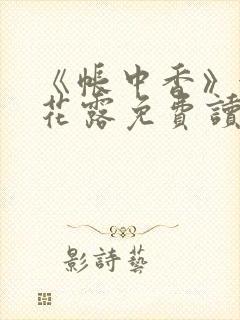 《帳中香》
花露免費讀
影詩藝